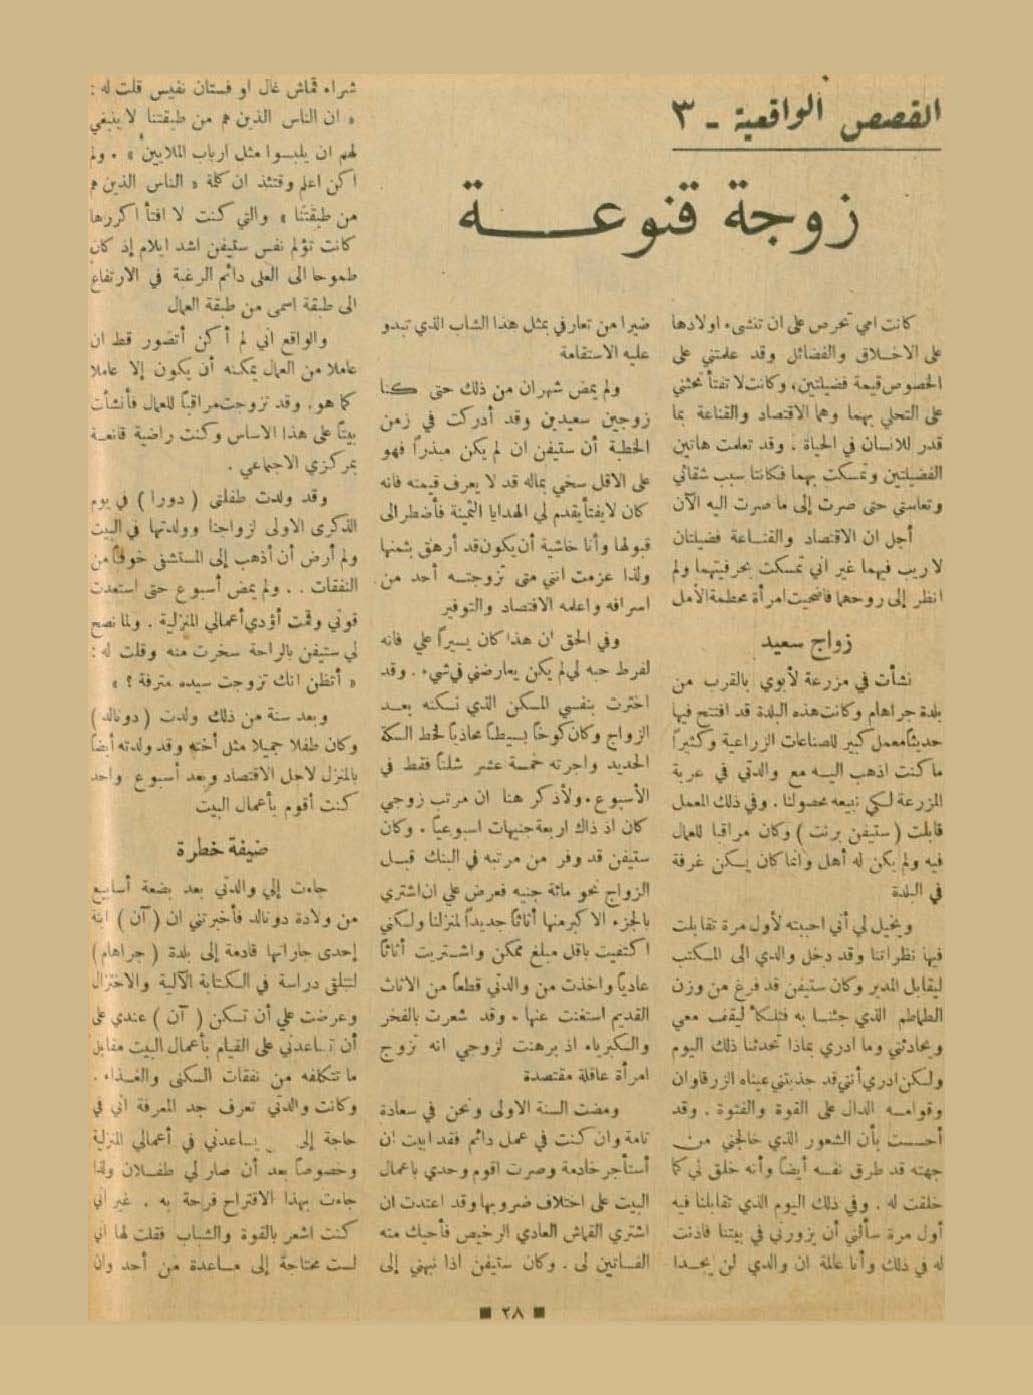 القصص الواقعية - ٣
زوجة قنوعة
كانت امي تحرص على ان تنشىء اولادها
على الاخلاق والفضائل وقد علمتني على
الخصوص قيمة فضيلتين، وكانت لا تفتأ تحثني
على التحلي بهما وهما الاقتصاد والقناعة بما
قدر للانسان في الحياة . وقد تعلمت هاتين
الفضيلتين وتمسكت بهما فكانتا سبب شقائي
وتعاستي حتى صرت إلى ما صرت اليه الآن
أجل ان الاقتصاد والقناعة فضيلتان
لا ريب فيهما غير اني تمسكت بحرفيتهما ولم
انظر إلى روحهما فاضحيت امرأة محطمة الأمل
زواج سعيد
نشأت في مزرعة لأبوي بالقرب من
بلدة جراهام وكانت هذه البلدة قد افتتح فيها
حديثاً معمل كبير للصناعات الزراعية وكثيراً
ما كنت اذهب اليه مع والدتي في عربة
المزرعة لكي نبيعه محصولنا . وفي ذلك المعمل
قابلت ( ستيفن برنت ) وكان مراقبا للعمال
فيه ولم يكن له أهل وانما كان يسكن غرفة
في البلدة
ويخيل لي أني احببته لأول مرة تقابلت
فيها نظراتنا وقد دخل والدي الى المكتب
ليقابل المدير وكان ستيفن قد فرغ من وزن
الطماطم الذي جئنا به فتلكأ ليقف معي
ويحادثني وما ادري بماذا تحدثنا ذلك اليوم
ولكن ادري أنني قد جذبتني عيناه الزرقاوان
وقوامه الدال على القوة والفتوة . وقد
أحسست بأن الشعور الذي خالجني من
جهته قد طرق نفسه أيضاً وأنه خلق لي كما
خلقت له . وفي ذلك اليوم الذي تقابلنا فيه
أول مرة سألني أن يزورني في بيتنا فاذنت
له في ذلك وأنا عالمة ان والدي لن يجدا
ضيرا من تعارفي بمثل هذا الشاب الذي تبدو
عليه الاستقامة
ولم يمض شهران من ذلك حتى كنا
زوجين سعيدين وقد أدركت في زمن
الخطبة أن ستيفن ان لم يكن مبذراً فهو
على الاقل سخي بماله قد لا يعرف قيمته فانه
كان لا يفتأ يقدم لي الهدايا الثمينة فأضطر الى
قبولها وأنا خاشية أن يكون قد أرهق بثمنها
ولذا عزمت انني متى تزوجته أحد من
اسرافه واعلمه الاقتصاد والتوفير
وفي الحق ان هذا كان يسيراً علي فانه
لفرط حبه لي لم يكن يعارضني في شيء . وقد
اخترت بنفسي المسكن الذي نسكنه بعد
الزواج وكان كوخاً بسيطاً محاذياً لخط السكة
الحديد واجرته خمسة عشر شلناً فقط في
الأسبوع . ولأذكر هنا ان مرتب زوجي
كان اذ ذاك اربعة جنيهات اسبوعياً . وكان
ستيفن قد وفر من مرتبه في البنك قبل
الزواج نحو مائة جنيه فعرض علي ان اشتري
بالجزء الاكبر منها أثاثاً جديداً لمنزلنا ولكني
اكتفيت باقل مبلغ ممكن واشتريت أثاثاً
عادياً واخذت من والدتي قطعاً من الاثاث
القديم استغنت عنها . وقد شعرت بالفخر
والكبرياء اذ برهنت لزوجي انه تزوج
امرأة عاقلة مقتصدة
ومضت السنة الاولى ونحن في سعادة
تامة وان كنت في عمل دائم فقد ابيت ان
أستأجر خادمة وصرت اقوم وحدي باعمال
البيت على اختلاف ضروبها وقد اعتدت ان
اشتري القماش العادي الرخيص فأحيك منه
الفساتين لي . وكان ستيفن اذا نبهني إلى
شراء قماش غال او فستان نفيس قلت له :
« ان الناس الذين هم من طبقتنا لا ينبغي
لهم ان يلبسوا مثل ارباب الملايين » . ولم
اكن اعلم وقتئذ ان كلمة « الناس الذين هم
من طبقتنا » والتي كنت لا افتأ اكررها
كانت تؤلم نفس ستيفن اشد ايلام إذ كان
طموحا الى العلى دائم الرغبة في الارتفاع
الى طبقة اسمى من طبقة العمال
والواقع اني لم أكن أتصور قط ان
عاملا من العمال يمكنه أن يكون إلا عاملا
كما هو . وقد تزوجت مراقباً للعمال فأنشأت
بيتاً على هذا الاساس وكنت راضية قانعة
بمركزي الاجتماعي .
وقد ولدت طفلتي ( دورا ) في يوم
الذكرى الاولى لزواجنا وولدتها في البيت
ولم أرض أن أذهب إلى المستشفى خوفاً من
النفقات . . ولم يمض أسبوع حتى استعدت
قوتي وقمت أؤدي أعمالي المنزلية . ولما نصح
لي ستيفن بالراحة سخرت منه وقلت له :
« أتظن انك تزوجت سيده مترفة ؟ »
وبعد سنة من ذلك ولدت ( دونالد )
وكان طفلا جميلا مثل أخته وقد ولدته أيضاً
بالمنزل لاجل الاقتصاد وبعد أسبوع واحد
كنت أقوم بأعمال البيت
ضيفة خطرة
جاءت إلي والدتي بعد بضعة أسابيع
من ولادة دونالد فأخبرتني ان ( آن ) ابنة
إحدى جاراتها قادمة إلى بلدة ( جراهام )
لتتلقى دراسة في الكتابة الآلية والاختزال
وعرضت علي أن تسكن ( آن ) عندي على
أن تساعدني على القيام بأعمال البيت مقابل
ما تتكلفه من نفقات السكنى والغذاء .
وكانت والدتي تعرف جد المعرفة اني في
حاجة إلى يساعدني في أعمالي المنزلية
وخصوصاً بعد أن صار لي طفلان ولذا
جاءت بهذا الاقتراح فرحة به . غير اني
كنت اشعر بالقوة والشباب فقلت لها اني
لست محتاجة إلى مساعدة من أحد وان
٢٨